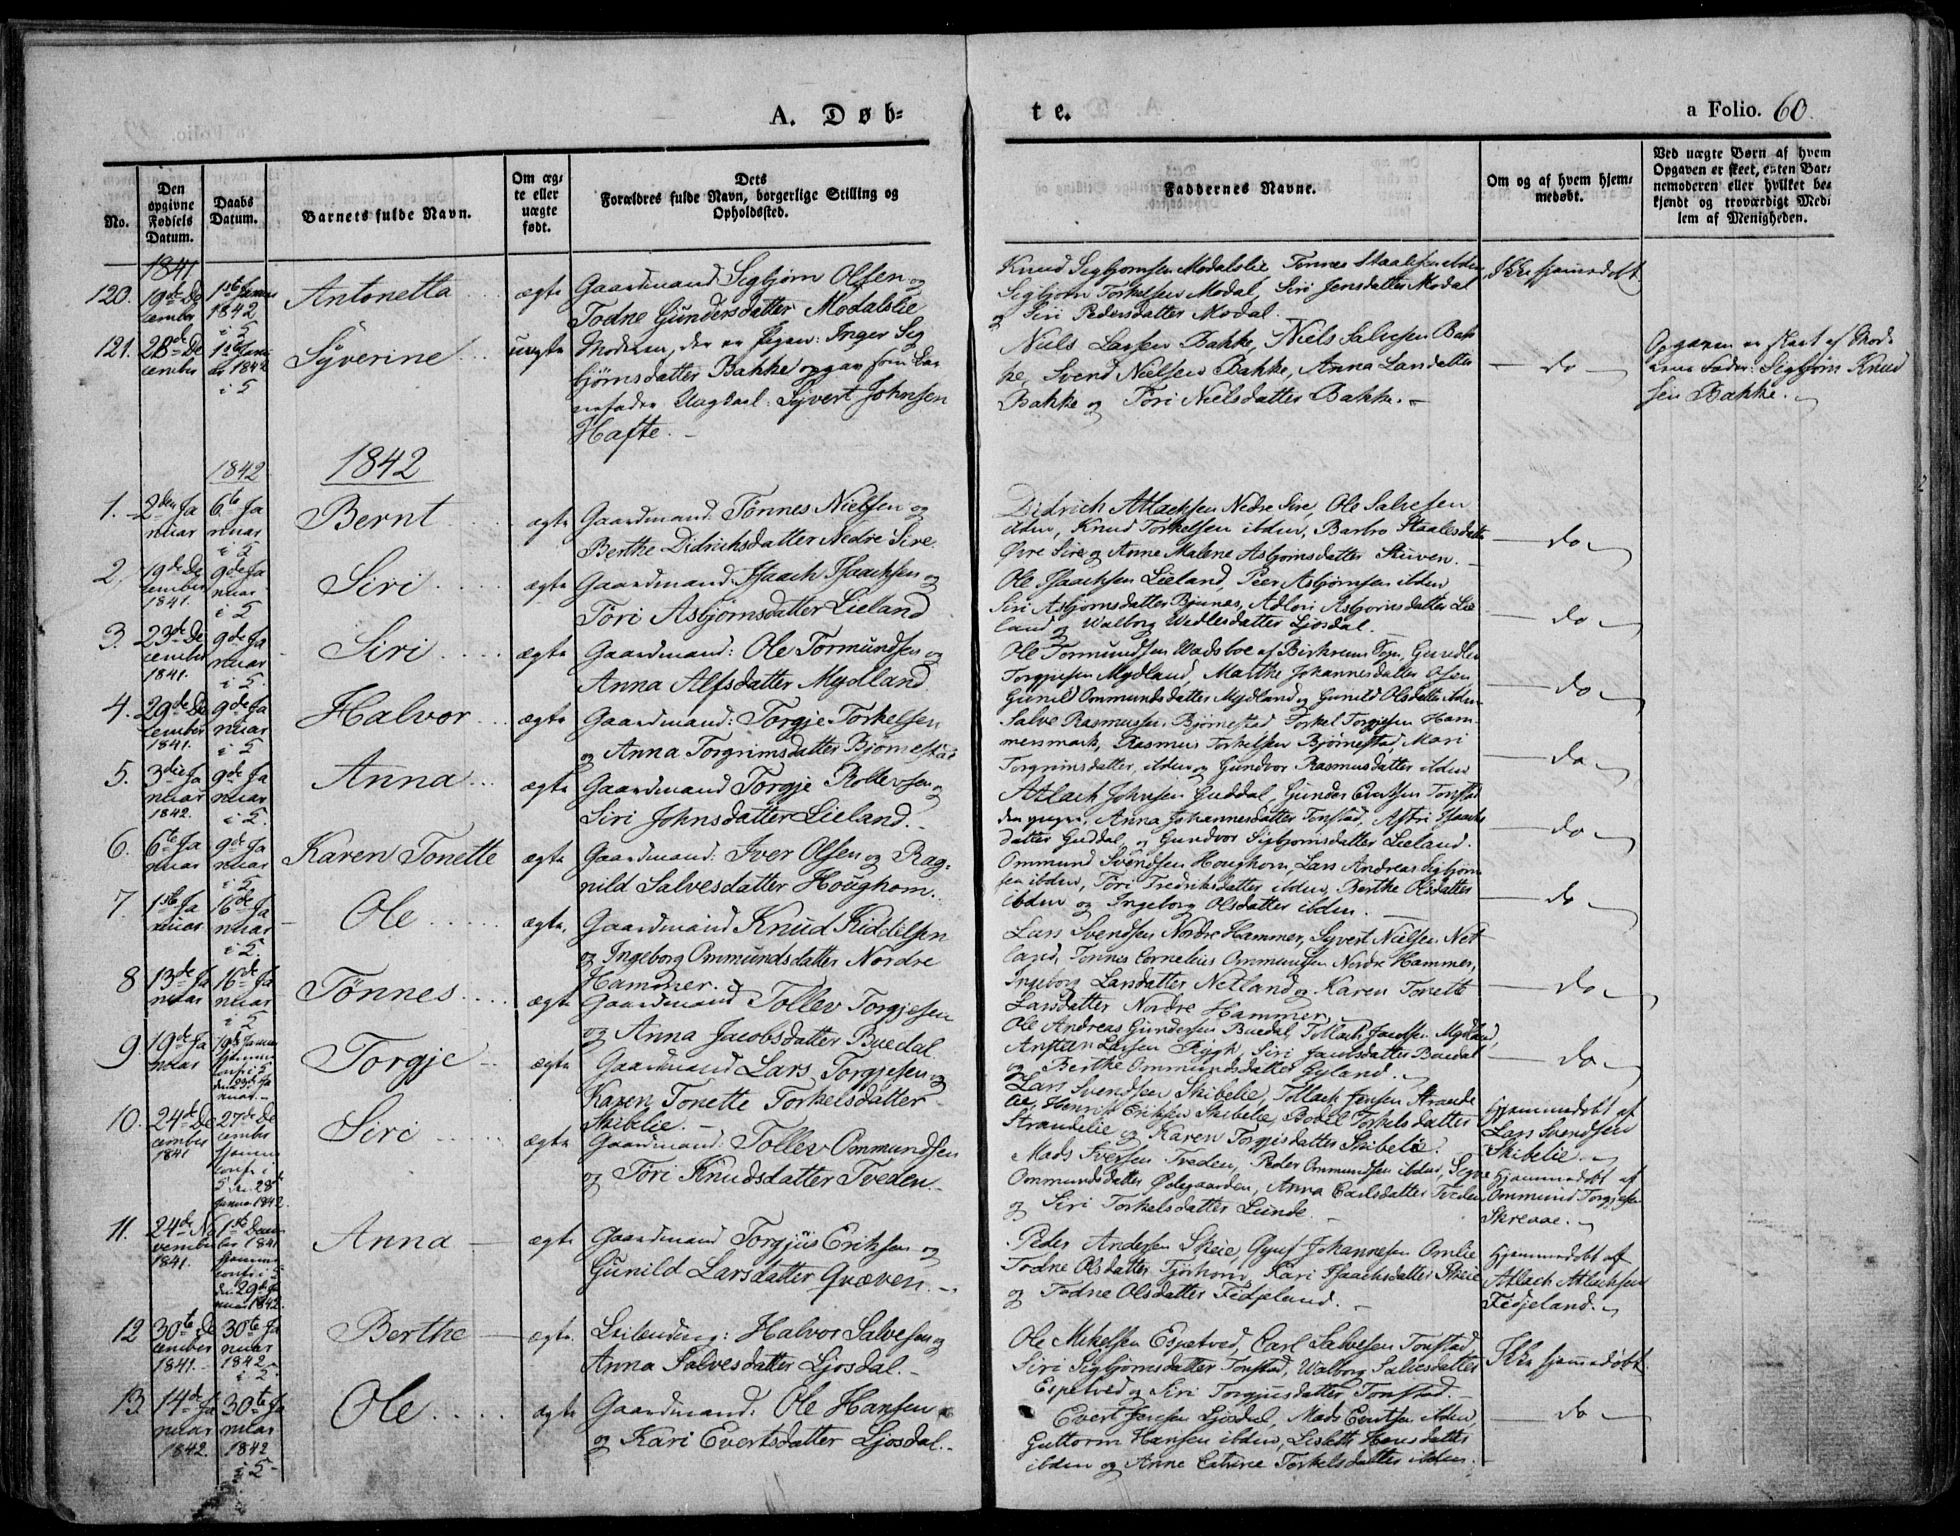 A. Døb=
te.
a Folio. 60.
No.
Den
opgivne
Fødsels
Datum.
Daabs
Datum.
Barnets fulde Navn.
Om æg-
te eller
uægte
født.
Dets
Forældres fulde Navn, borgerlige Stilling og
Opholdssted.
Faddernes Navne.
Om og af hvem hjem-
medøbt.
Ved uægte Børn af hvem
Opgaven er skeet, enten Bar-
nemoderen eller hvilket be-
kjendt og troværdigt Med-
lem af Menigheden.
1841
120.
19de De
cember
1ste Januar
1842
i 5
Antonetta
ægte
Gaardmand Sigbjørn Olsen og
Todne Gundersdatter Modalslie
Knud Sigbjørnsen Modalslie, Tønnes Staalesen ibden
Sigbjørn Torkelsen Modal, Siri Jensdatter Modal
og Siri Pedersdatter Modal.
Ikke hjemmedøbt.
121.
28de De
cember
1ste Janu
ar 1842
i 5
Syverine
uægte
Moderen, der er Pigen: Inger Sig
bjørnsdatter Bakke opgav som Bar
nefader Ungkarl: Syvert Johnsen
Hafte.
Niels Larsen Bakke, Niels Salvesen Bak
ke, Svend Nielsen Bakke, Anna Larsdatter
Bakke og Tori Nielsdatter Bakke.
do
Opgaven er skeet af Mod
erens Fader: Sigbjørn Knud
sen Bakke.
1842
1842
1.
2den Ja
nuar
6te Ja
nuar
i 5
Bernt
ægte
Gaardmand: Tønnes Nielsen og
Berthe Didrichsdatter Nedre Sire.
Didrich Atlachsen Nedre Sire, Ole Salvesen
ibden, Knud Torkelsen ibden, Barbro Staalesdatter
Øvre Sire og Anne Malene Asbjørnsdatter Stuven.
do
2.
19de De
cember
1841.
9de Ja
nuar
i 5
Siri
ægte
Gaardmand: Isaach Isaachsen og
Tori Asbjørnsdatter Lieland
Ole Isaachsen Lieland, Peer Asbjørnsen ibden
Siri Asbjørnsdatter Bjunes, Adlori Asbjørnsdatter Lie
land og Walborg Wedlesdatter Ljosdal.
do
3.
23de De
cember
1841.
9de Ja
nuar
i 5.
Siri
ægte
Gaardmand: Ole Tormundsen og
Anna Alfsdatter Mydland
Ole Tormundsen Wadsboe af Birkrems Sogn, Gundlei
Torgjusen Mydland, Marthe Johannesdatter Osen,
Gunild Ommundsdatter Mydland og Gunild Olsdatter ibden
do
4.
29de De
cember
1841.
9de Ja
nuar
i 5
Halvor
ægte
Gaardmand: Torgje Torkelsen
og Anna Torgrimsdatter Bjørnestad
Salve Rasmussen Bjørnestad Torkel Torgjesen Ham
mersmark, Rasmus Torkelsen Bjørnestad, Mari
Torgrimsdatter, ibden og Gundvor Rasmusdatter ibden
do
5.
3die Ja
nuar
1842.
9de Ja
nuar
i 5.
Anna
ægte
Gaardmand Torgje Rollevsen og
Siri Johnsdatter Lieland.
Atlach Johnsen Guddal, Gunder Evertsen Tonstad
den yngre, Anna Johannesdatter Tonstad, Astri Isaachs
datter Guddal og Gundvor Sigbjørnsdatter Lieland.
do
6.
6te Ja
nuar
9de Ja
nuar
i 5
Karen Tonette
ægte
Gaardmand: Iver Olsen og Rag
nild Salvesdatter Houghom.
Ommund Svendsen Houghom, Lars Andreas Sigbjørn
sen ibden, Tori Fredriksdatter ibden, Berthe Olsdatter
ibden og Ingeborg Olsdatter ibden.
do
7.
1ste Ja
nuar
16de Ja
nuar
i 5.
Ole
ægte.
Gaardmand Knud Kiddelsen
og Ingeborg Ommundsdatter Nordre
Hammer.
Lars Svendsen Nordre Hammer, Syvert Nielsen Net
land, Tonnes Cornelius Ommundsen Nordre Hammer,
Ingeborg Larsdatter Netland og Karen Tonette
Larsdatter Nordre Hammer.
do
8
13de Ja
nuar
16de Ja
nuar
i 5
Tønnes
ægte
Gaardmand Tollev Torgjesen
og Anna Jacobsdatter Buedal.
Ole Andreas Gundersen Buedal, Tollach Jacobsen Mydland,
Ansteen Larsen Rygh, Siri Jacobsdatter Buedal
og Berthe Ommundsdatter Gyland.
do
9.
19de Ja
nuar
19de Januar
hjemme
conf. i 5
den 23de Ja
nuar.
Torgje
ægte
Gaardmand Lars Torgjesen og
Karen Tonette Torkelsdatter
Skibelie.
Lars Svendsen Skibelie, Tollach Jensen Strande
lie, Henrik Eriksen Skibelie, Bodel Torkelsdatter
Strandelie og Karen Torgjesdatter Skibelie.
Hjemmedøbt af
Lars Svendsen
Skibelie.
10.
24de De
cember
1841
27de De
cember
hjemme
conf. i
5 den 28de
Januar 1842.
Siri
ægte
Gaardmand: Tollev Ommundsen
og Tori Knudsdatter Tveden
Mads Iversen Tveden, Peder Ommundsen ibden, Signe
Ommundsdatter Ødegaarden, Anna Carlsdatter Tveden
og Siri Torkelsdatter Lunde.
Hjemmedøbt af
Ommund Torgjesen
Skreaae.
11.
24de No
vember
1841.
1ste Decem
ber 1841
hjemme
conf. i 5
den 29de Ja
nuar 1842.
Anna
ægte
Gaardmand Torgjus Eriksen og
Gunild Larsdatter Qvæven.
Peder Andersen Skeie, Gjuf Johannesen Omlie
Todne Olsdatter Tjørhom, Kari Isaachsdatter Skeie
og Todne Olsdatter Fedjeland.
Hjemmedøbt af
Atlach Atlachsen
Fedjeland.
12
30te De
cember
1841.
30te Ja
nuar
1842
i 5
Berthe
ægte.
Leilending: Halvor Salvesen og
Anna Salvesdatter Ljosdal.
Ole Mikelsen Espetved, Carl Salvesen Tonstad,
Siri Sigbjørnsdatter Tonstad, Walborg Salvesdatter
Espetved og Siri Torgjusdatter Tonstad.
Ikke hjemmedøbt.
13
14de Ja
nuar
1842.
30te Ja
nuar
1842
i 5
Ole
ægte
Gaardmand: Ole Hansen
og Kari Evertsdatter Ljosdal.
Evert Jensen Ljosdal, Mads Evertsen ibden,
Guttorm Hansen ibden, Lisbeth Hansdatter
ibden og Anne Catrine Torkelsdatter ibden.
do